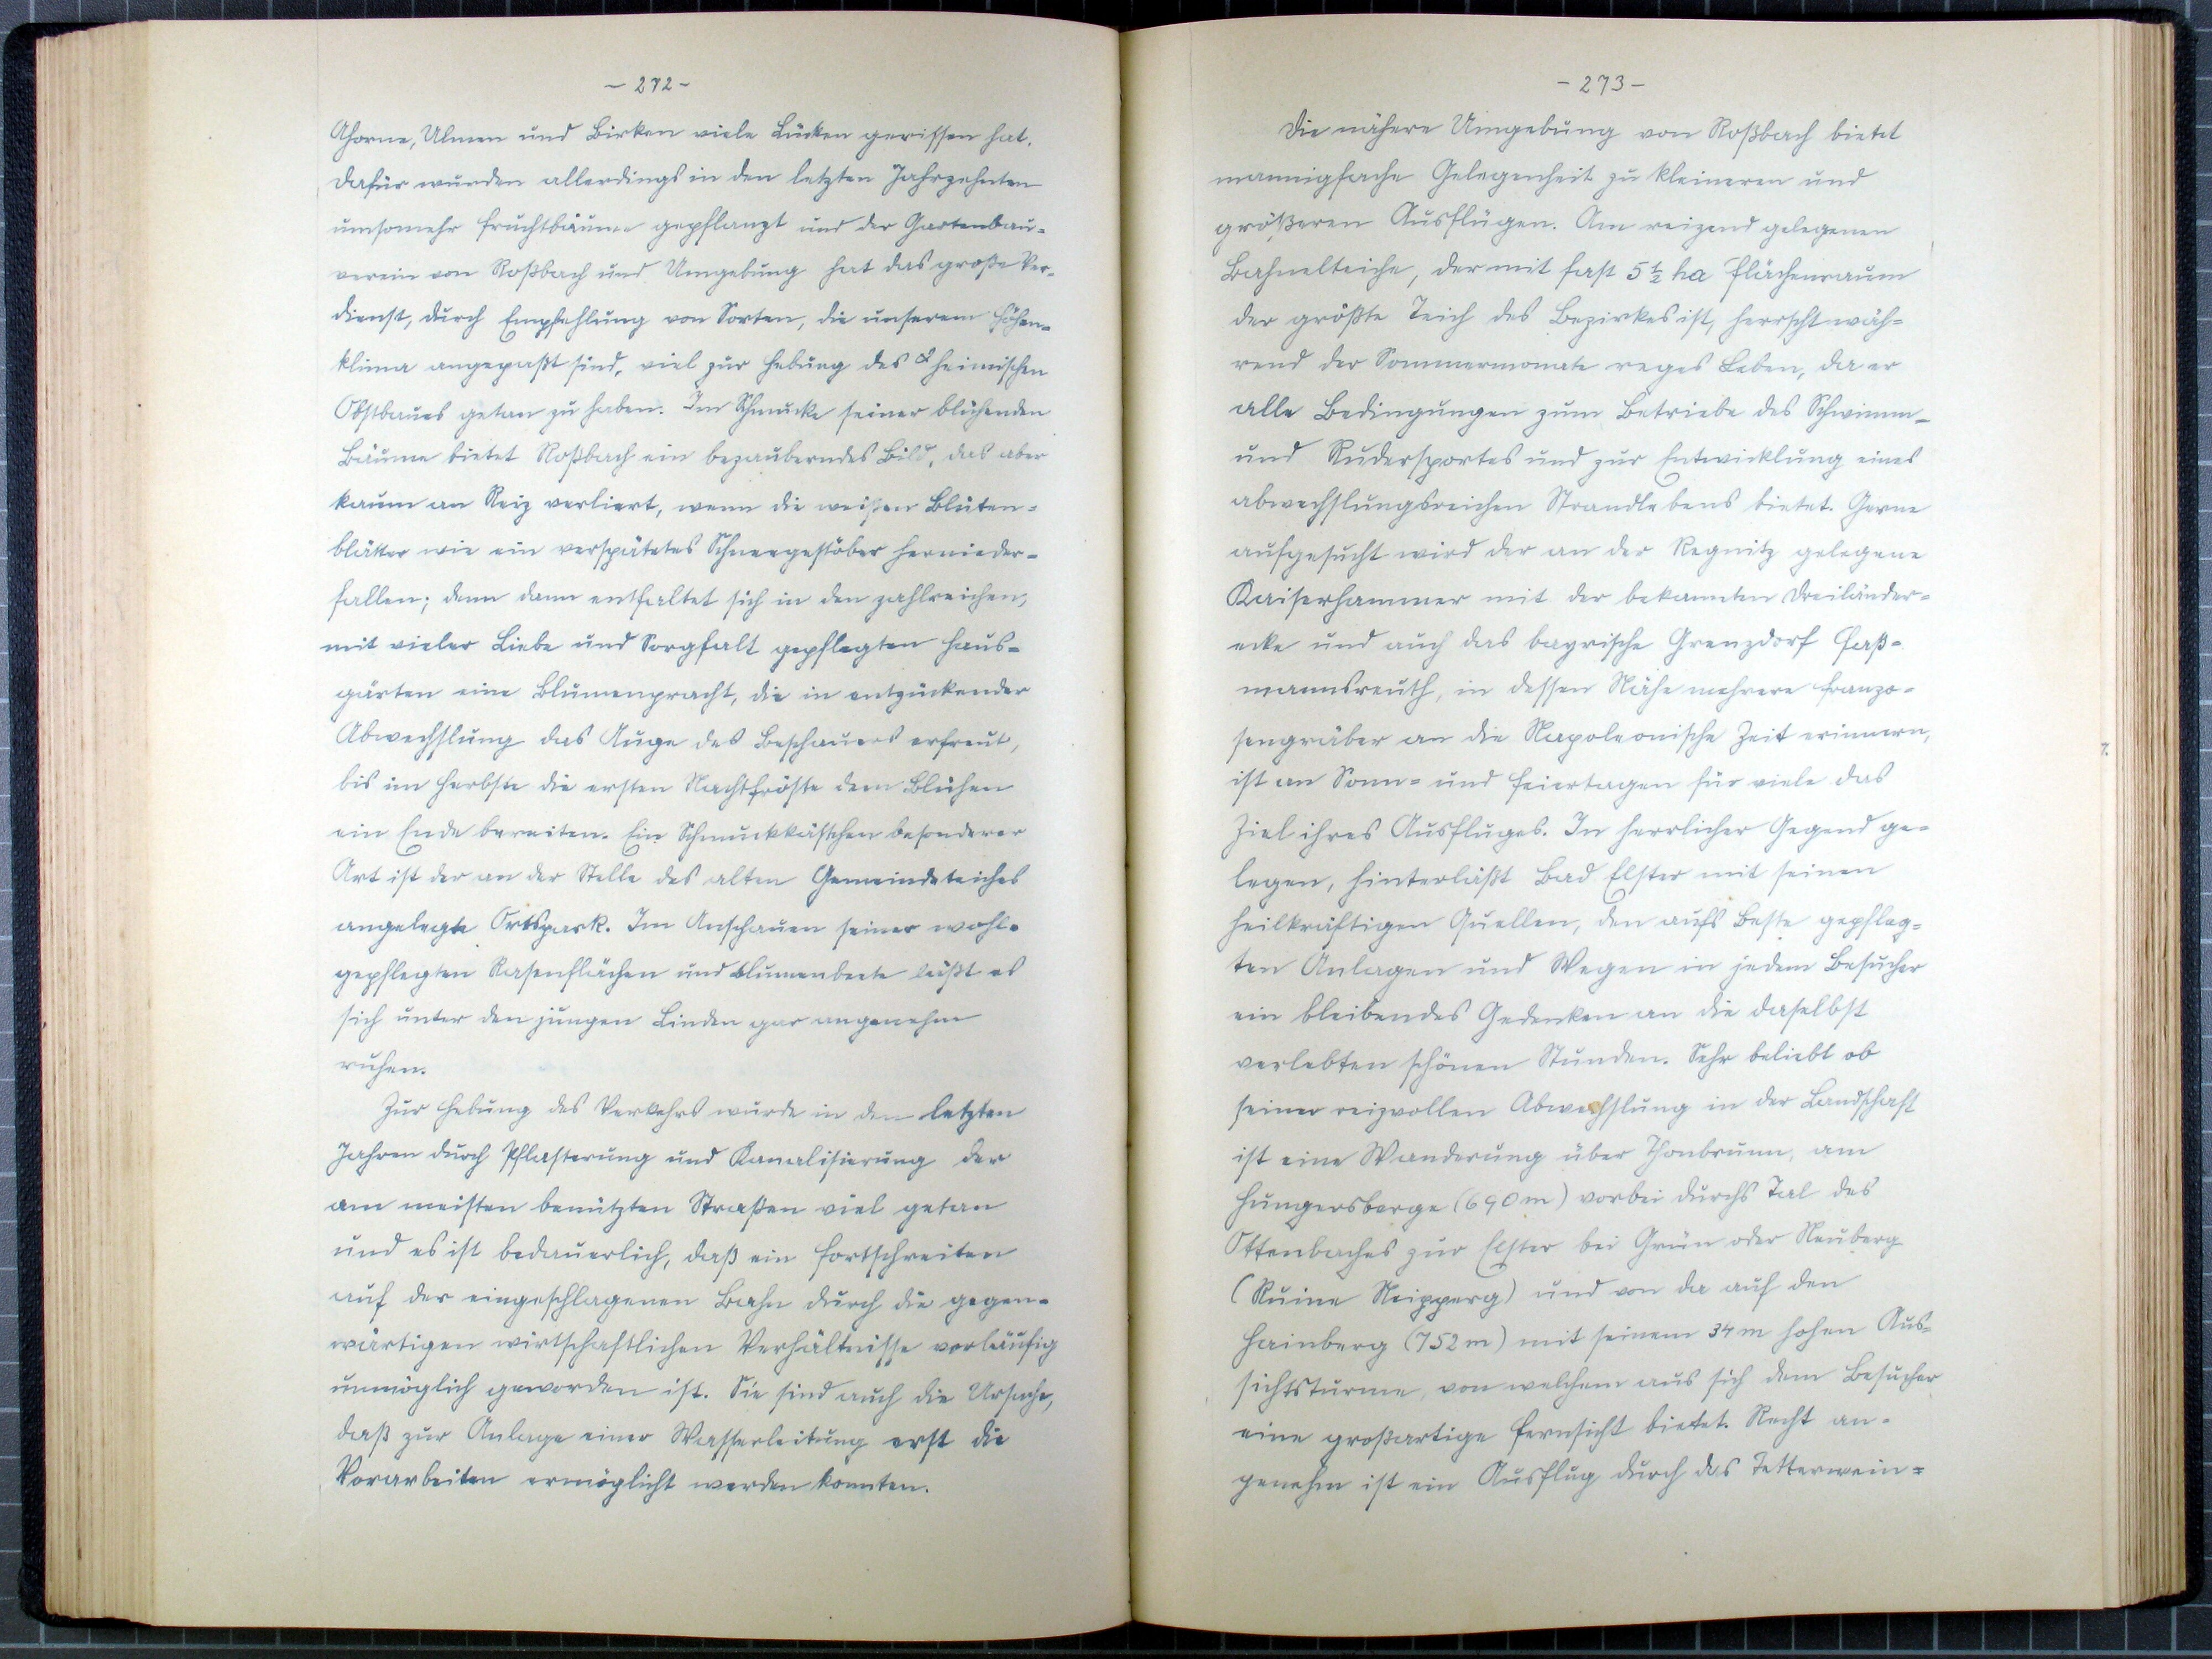 - 272 -
Ahorne, Ulmen und Birken viele Lücken gerissen hat.
Dafür wurden allerdings in den letzten Jahrzehnten
umsomehr Fruchtbäume gepflanzt und der Gartenbau-
verein von Roßbach und Umgebung hat das große Ver-
dienst, durch Empfehlung von Sorten, die unserem Höhen-
klima angepaßt sind, viel zur Hebung des heimischen
Obstbaues getan zu haben. Im Schmucke seiner blühenden
Bäume bietet Roßbach ein bezauberndes Bild, das aber
kaum an Reiz verliert, wenn die weißen Blüten-
blätter wie ein verspätetes Schneegestöber hernieder-
fallen; denn dann entfaltet sich in den zahlreichen,
mit vieler Liebe und Sorgfalt gepflegten Haus-
gärten eine Blumenpracht, die in entzückender
Abwechslung das Auge des Beschauers erfreut,
bis im Herbste die ersten Nachtfröste dem Blühen
ein Ende bereiten. Ein Schmuckkästchen besonderer
Art ist der an der Stelle des alten Gemeindeteiches
angelegte Ortspark. Im Anschauen seiner wohl-
gepflegten Rasenflächen und Blumenbeete läßt es
sich unter den jungen Linden gar angenehm
ruhen.
Zur Hebung des Verkehrs wurde in den letzten
Jahren durch Pflasterung und Kanalisierung der
am meisten benützten Straßen viel getan
und es ist bedauerlich, daß ein Fortschreiten
auf der eingeschlagenen Bahn durch die gegen-
wärtigen wirtschaftlichen Verhältnisse vorläufig
unmöglich geworden ist. Sie sind auch die Ursache,
daß zur Anlage einer Wasserleitung erst die
Vorarbeiten ermöglicht werden konnten.
- 273 -
Die nähere Umgebung von Roßbach bietet
mannigfache Gelegenheit zu kleineren und
größeren Ausflügen. Am reizend gelegenen
Bahnelteiche, der mit fast 5½ ha Flächenraum
der größte Teich des Bezirkes ist, herrscht wäh-
rend der Sommermonate reges Leben, da er
alle Bedingungen zum Betriebe des Schwimm-
und Rudersportes und zur Entwicklung eines
abwechslungsreichen Strandlebens bietet. Gerne
aufgesucht wird der an der Regnitz gelegene
Kaiserhammer mit der bekannten Dreiländer-
ecke und auch das bayrische Grenzdorf Faß-
mannsreuth, in dessen Nähe mehrere Franzo-
sengräber an die Napoleonische Zeit erinnern,
ist an Sonn- und Feiertagen für viele das
Ziel ihres Ausfluges. In herrlicher Gegend ge-
legen, hinterläßt Bad Elster mit seinen
heilkräftigen Quellen, den aufs Beste gepfleg-
ten Anlagen und Wegen in jedem Besucher
ein bleibendes Gedenken an die daselbst
verlebten schönen Stunden. Sehr beliebt ob
seiner reizvollen Abwechslung in der Landschaft
ist eine Wanderung über Thonbrunn, am
Hungersberge (690 m) vorbei durchs Tal des
Ottenbaches zur Elster bei Grün oder Neuberg
(Ruine Neipperg) und von da auf den
Hainberg (752 m) mit seinem 34 m hohen Aus-
sichtsturme, von welchem aus sich dem Besucher
eine großartige Fernsicht bietet. Recht an-
genehm ist ein Ausflug durch das Tetterwein-